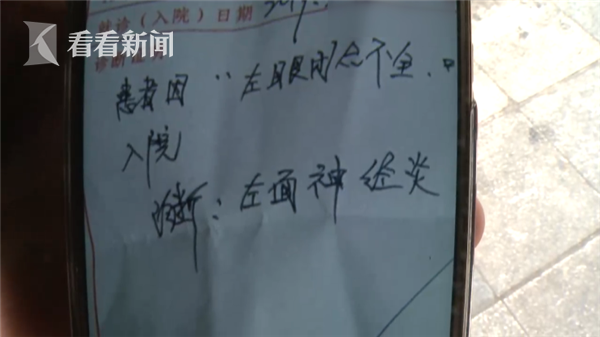 看看新闻
就诊（入院）日期 2019.
患者因 "左眼闭合不全，"
入院
诊断：左面神经炎